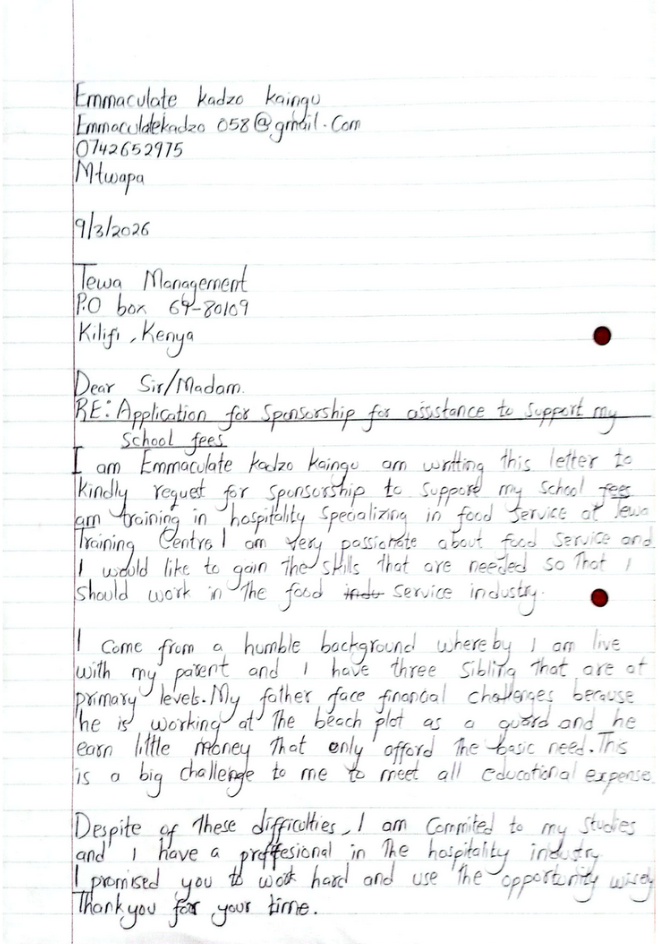 Emmaculate kadzo kaingu
Emmaculatekadzo 058@gmail.com
0742652975
Mtwapa
9/3/2026
Tewa Management
P.O box 64-80109
Kilifi, Kenya
Dear Sir/Madam.
RE: Application for sponsorship for assistance to support my
school fees
I am Emmaculate kadzo kaingu am writting this letter to
kindly request for sponsorship to support my school fees
am training in hospitality specializing in food service at Tewa
Training Centre I am very passionate about food service and
I would like to gain the skills that are needed so that I
should work in the food indu service industry.
I come from a humble background whereby I am live
with my parent and I have three sibling that are at
primary levels. My father face financial challenges because
he is working at the beach plot as a guard and he
earn little money that only afford the basic need. This
is a big challenge to me to meet all educational expense.
Despite of these difficulties, I am commited to my studies
and I have a proffesional in the hospitality industry
I promised you to work hard and use the opportunity wisely
Thankyou for your time.